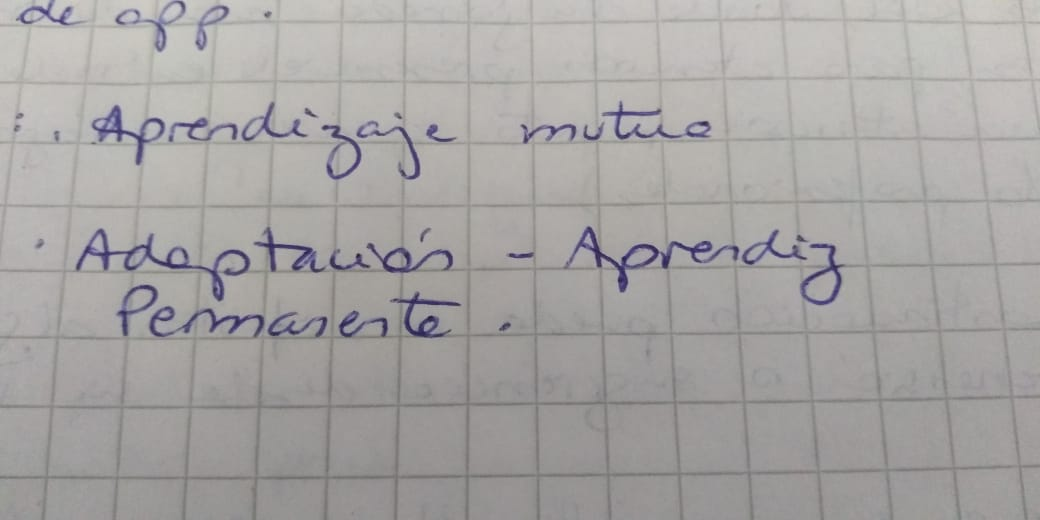 de app.
: . Aprendizaje mutuo
. Adaptación - Aprendiz
Permanente .